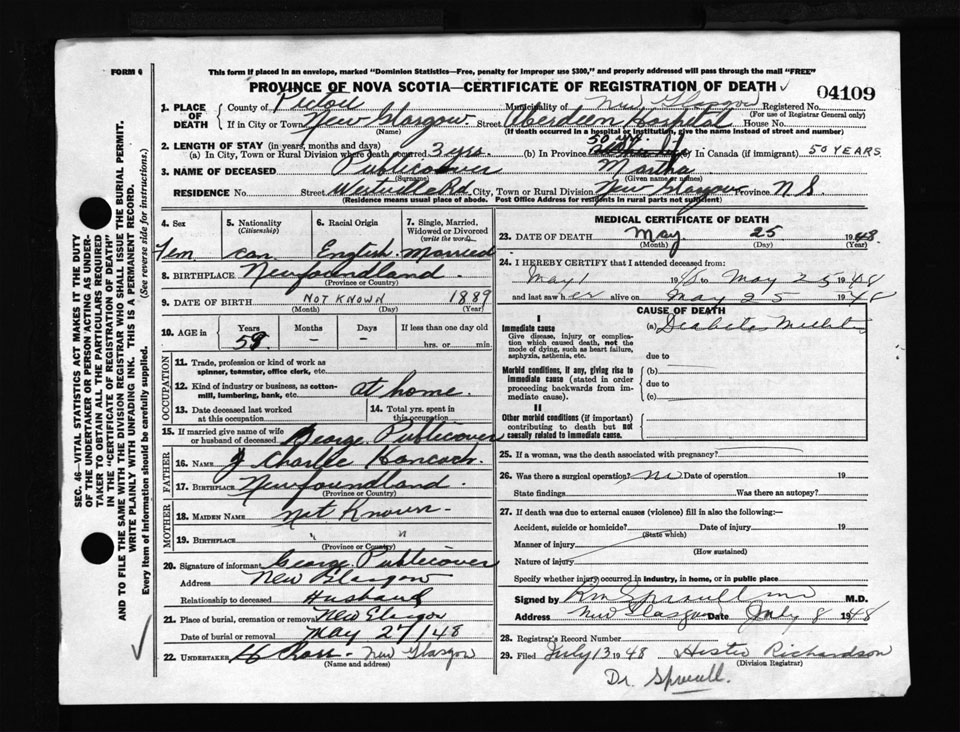 FORM 6
This form if placed in an envelope, marked "Dominion Statistics—Free, penalty for improper use $300," and properly addressed will pass through the mail "FREE"
PROVINCE OF NOVA SCOTIA—CERTIFICATE OF REGISTRATION OF DEATH ✓
04109
1. PLACE OF DEATH
County of Pictou Municipality of New Glasgow Registered No.
(For use of Registrar General only)
If in City or Town New Glasgow. Street Aberdeen Hospital House No.
(Name) (If death occurred in a hospital or institution, give the name instead of street and number)
2. LENGTH OF STAY (in years, months and days) 50 yrs.
(a) In City, Town or Rural Division where death occurred 3 yrs (b) In Province In Canada (if immigrant) 50 YEARS
3. NAME OF DECEASED Publicover Martha
(Surname) (Given name or names)
RESIDENCE No. Street Westville Rd. City, Town or Rural Division New Glasgow Province N.S.
(Residence means usual place of abode. Post Office Address for residents in rural parts not sufficient)
4. Sex
Fem
5. Nationality
(Citizenship)
Can
6. Racial Origin
English
7. Single, Married, Widowed or Divorced
(write the word)
Married
8. BIRTHPLACE Newfoundland.
(Province or Country)
9. DATE OF BIRTH NOT KNOWN 1889
(Month) (Day) (Year)
10. AGE in
Years Months Days If less than one day old
59 – – hrs. or min.
OCCUPATION
11. Trade, profession or kind of work as spinner, teamster, office clerk, etc.
12. Kind of industry or business, as cotton-mill, lumbering, bank, etc. at home.
13. Date deceased last worked at this occupation
14. Total yrs. spent in this occupation
15. If married give name of wife or husband of deceased George Publicover
FATHER
16. NAME Charlie Hancock.
17. BIRTHPLACE Newfoundland.
(Province or Country)
MOTHER
18. MAIDEN NAME Not Known
19. BIRTHPLACE " "
(Province or Country)
20. Signature of informant George Publicover
Address New Glasgow
Relationship to deceased Husband
21. Place of burial, cremation or removal New Glasgow
Date of burial or removal May 27/48
22. UNDERTAKER New Glasgow
(Name and address)
MEDICAL CERTIFICATE OF DEATH
23. DATE OF DEATH May 25 1948
(Month) (Day) (Year)
24. I HEREBY CERTIFY that I attended deceased from:
May 1 1948 to May 25 1948
and last saw her alive on May 25 1948
CAUSE OF DEATH
I
Immediate cause
Give disease, injury or complication which caused death, not the mode of dying, such as heart failure, asphyxia, asthenia, etc.
(a) Diabetes Mellitus
due to
Morbid conditions, if any, giving rise to immediate cause (stated in order proceeding backwards from immediate cause).
(b)
due to
(c)
II
Other morbid conditions (if important) contributing to death but not causally related to immediate cause.
25. If a woman, was the death associated with pregnancy?
26. Was there a surgical operation? No Date of operation 19
State findings Was there an autopsy?
27. If death was due to external causes (violence) fill in also the following:—
Accident, suicide or homicide? Date of injury 19
(State which)
Manner of injury
(How sustained)
Nature of injury
Specify whether injury occurred in industry, in home, or in public place
Signed by M.D.
Address New Glasgow Date July 8 1948
28. Registrar's Record Number
29. Filed July 13 1948 Hester Richardson
(Division Registrar)
Dr. Sproull.
SEC. 46—VITAL STATISTICS ACT MAKES IT THE DUTY
OF THE UNDERTAKER OR PERSON ACTING AS UNDER-
TAKER TO OBTAIN ALL THE PARTICULARS REQUIRED
IN THE "CERTIFICATE OF REGISTRATION OF DEATH"
AND TO FILE THE SAME WITH THE DIVISION REGISTRAR WHO SHALL ISSUE THE BURIAL PERMIT.
WRITE PLAINLY WITH UNFADING INK. THIS IS A PERMANENT RECORD.
Every item of Information should be carefully supplied. (See reverse side for instructions.)